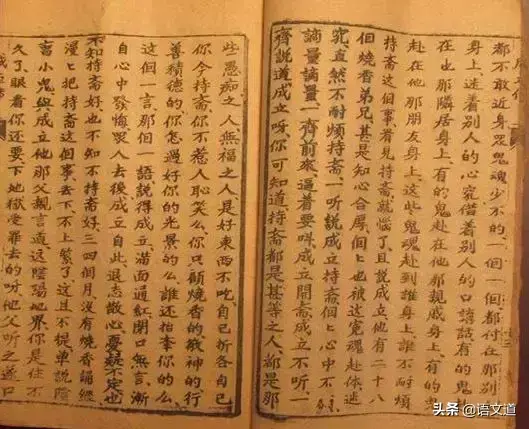 都不敢近身眾鬼魂少不的一個一個都付在那别
身上逹着别人的心窍借着别人的口講話有的鬼
在也那隣居身上有的鬼赴在他那親戚身上有的
赴在他那朋友身上這些鬼魂赴到誰身上誰不耐煩
持斎這个事看見持斎就惱了且説成立他有二十八
但燒香弟兄甚是知心合厚個个也被這寃魂赴体迷
究直然不耐煩持斎一听説成立持斎個个心中不
論量論量一齊前來逼着要呌成立開斎成立不听一
齊説道成立呀你可知道持斎都是甚等之人都是那
些愚痴之人無福之人是好東西不吃自己折各自己
你今持斎你不惹人恥笑么你只顧燒香的敬神的行
善積德的你怎過好你的光景的么誰还抬奉你的么
這個一言那個一語説得成立满面通紅閉口無言漸
自心中發悔眾人去後成立自此退志散心憂疑不定也
不知持斎好也不知不持斎好三四個月没有燒香誦經
漫漫把持斎這個事丢下不上緊了這且不提单説陰
畜小鬼與成立他那父親言道這陰陽地界你是住不
久了眼看你还要下地獄受罪去的听他父听之這口
头条 @语文道